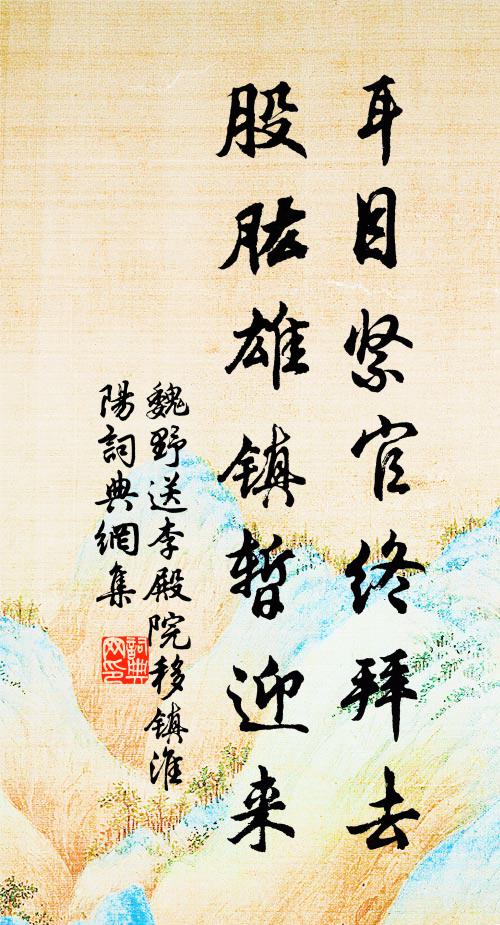 耳目紧官终拜去
股肱雄镇暂迎来
魏野送李殿院移镇淮
陽詞典網集
詞典
网印